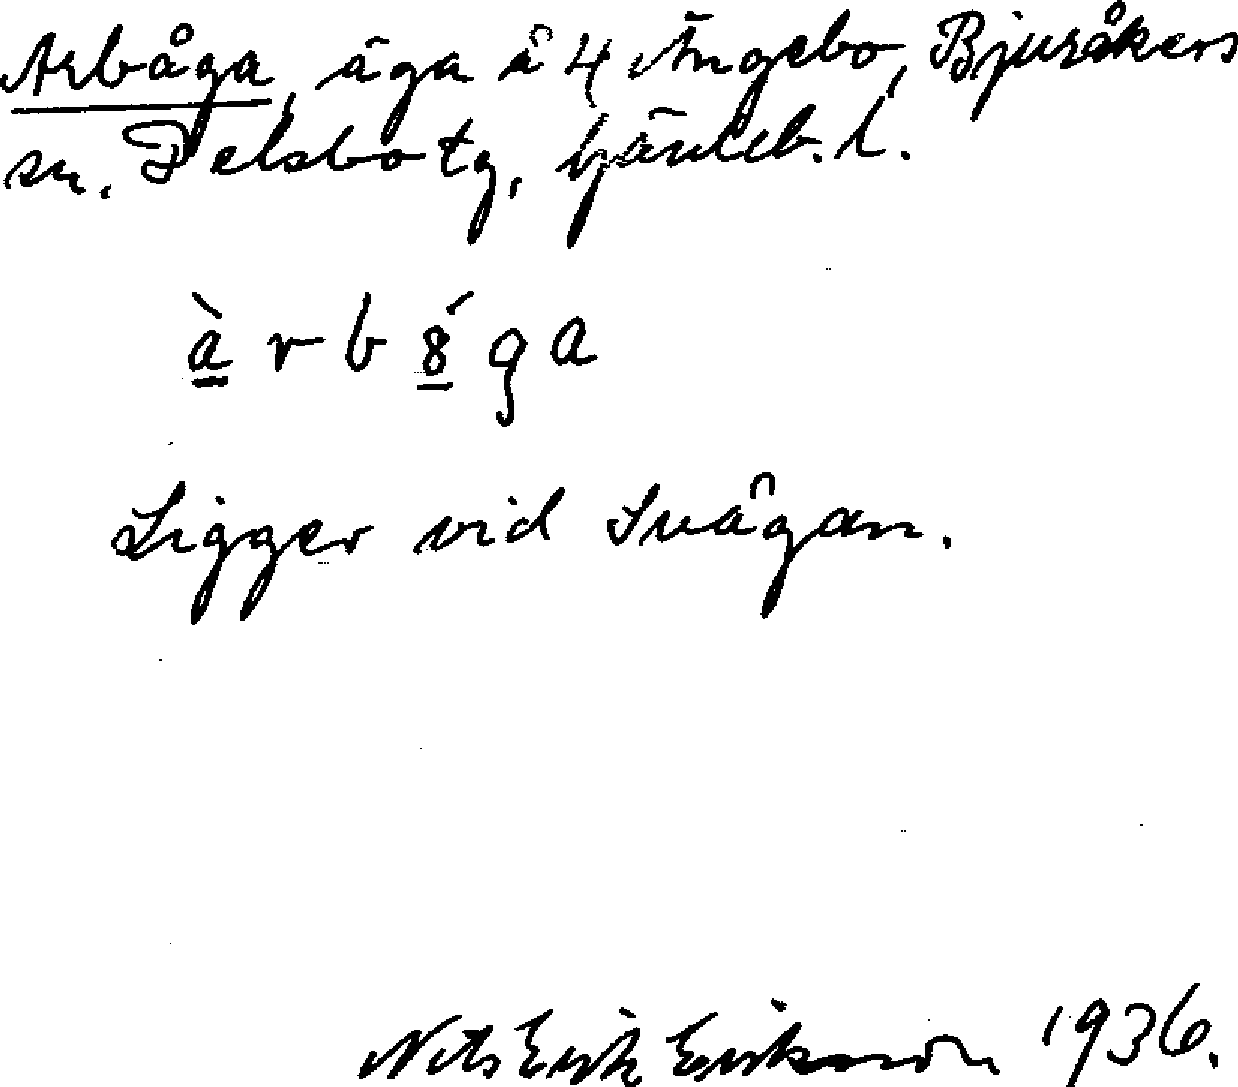 Arbåga, äga å 4 Ängebo, Bjuråkers
sn. Delsbo tg, Gävleb. l.
àrb8́ga
Ligger vid Svågan.
Nils Erik Eriksson 1936.